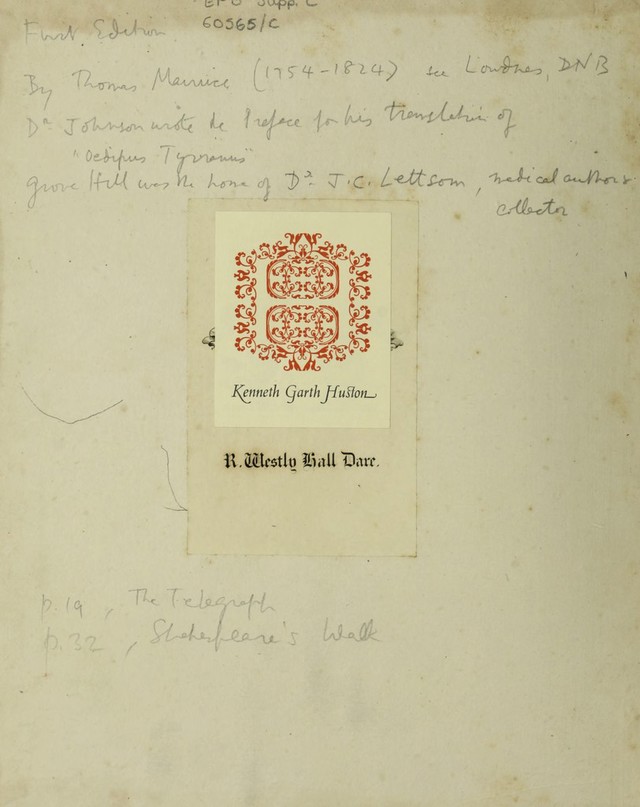 EPB Supp. C
60565/C
First Edition
By Thomas Maurice (1754-1824) see Lowndes, DNB
Dr Johnson wrote the Preface for his translation of
"Oedipus Tyrannus"
Grove Hill was the home of Dr. J.C. Lettsom, medical author &
collector
Kenneth Garth Huston
R. Westly Hall Dare.
p.19, The Telegraph
p.32, Shakespeare's Walk